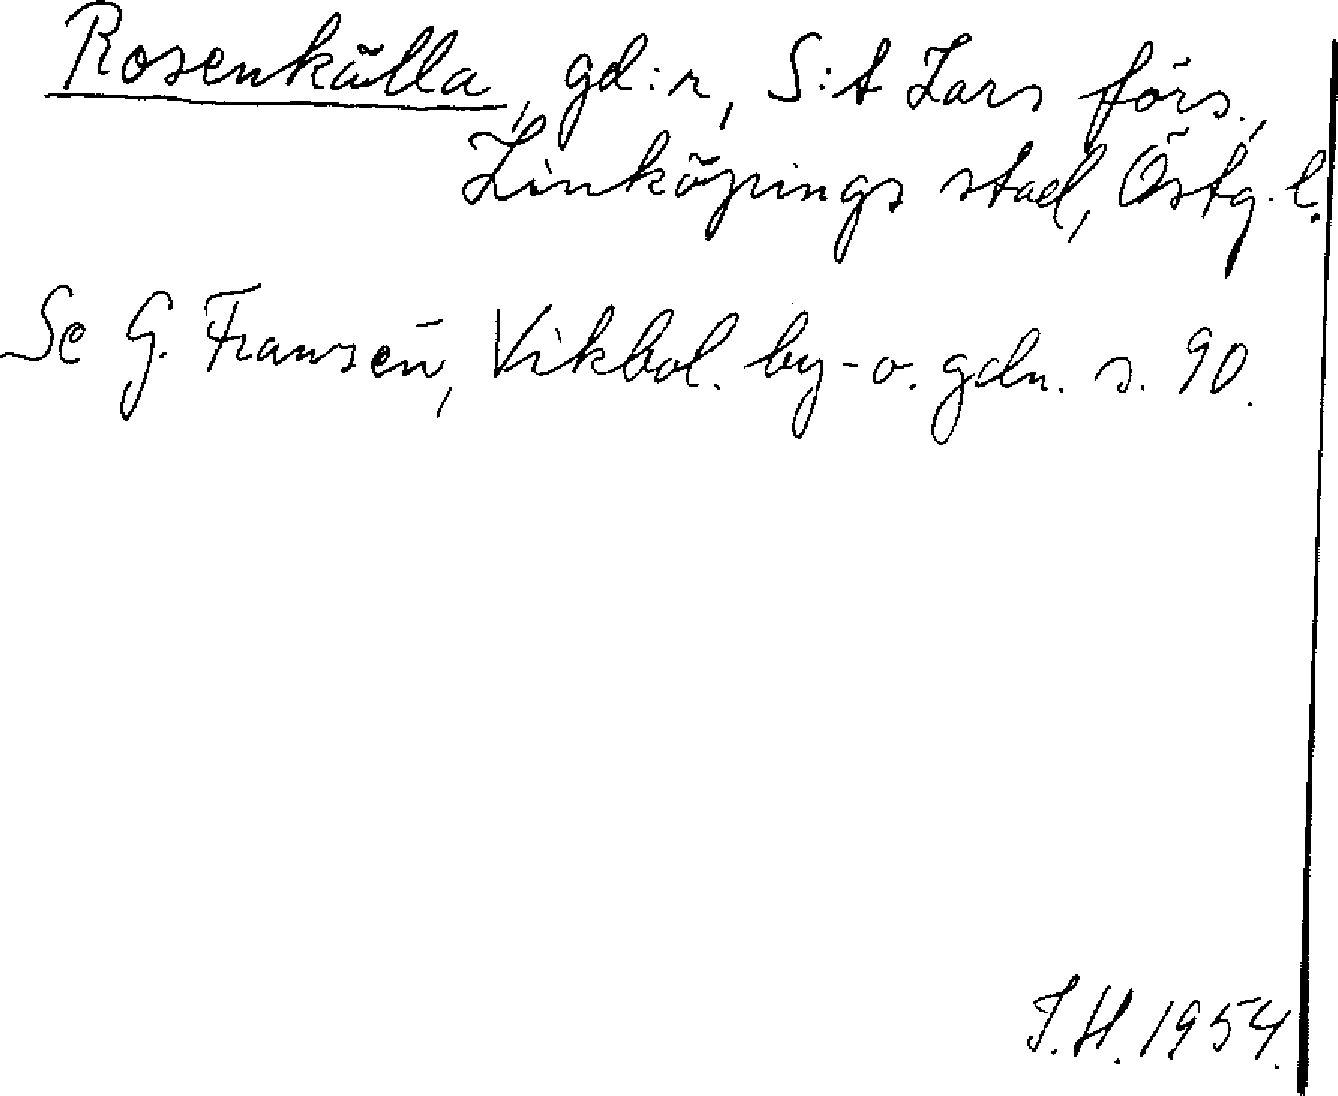 Rosenkälla, gd:r, S:t Lars förs.,
Linköpings stad, Östg. l.
Se G. Franzén, Vikbol. by- o. gdn. s. 90.
I.H. 1954.